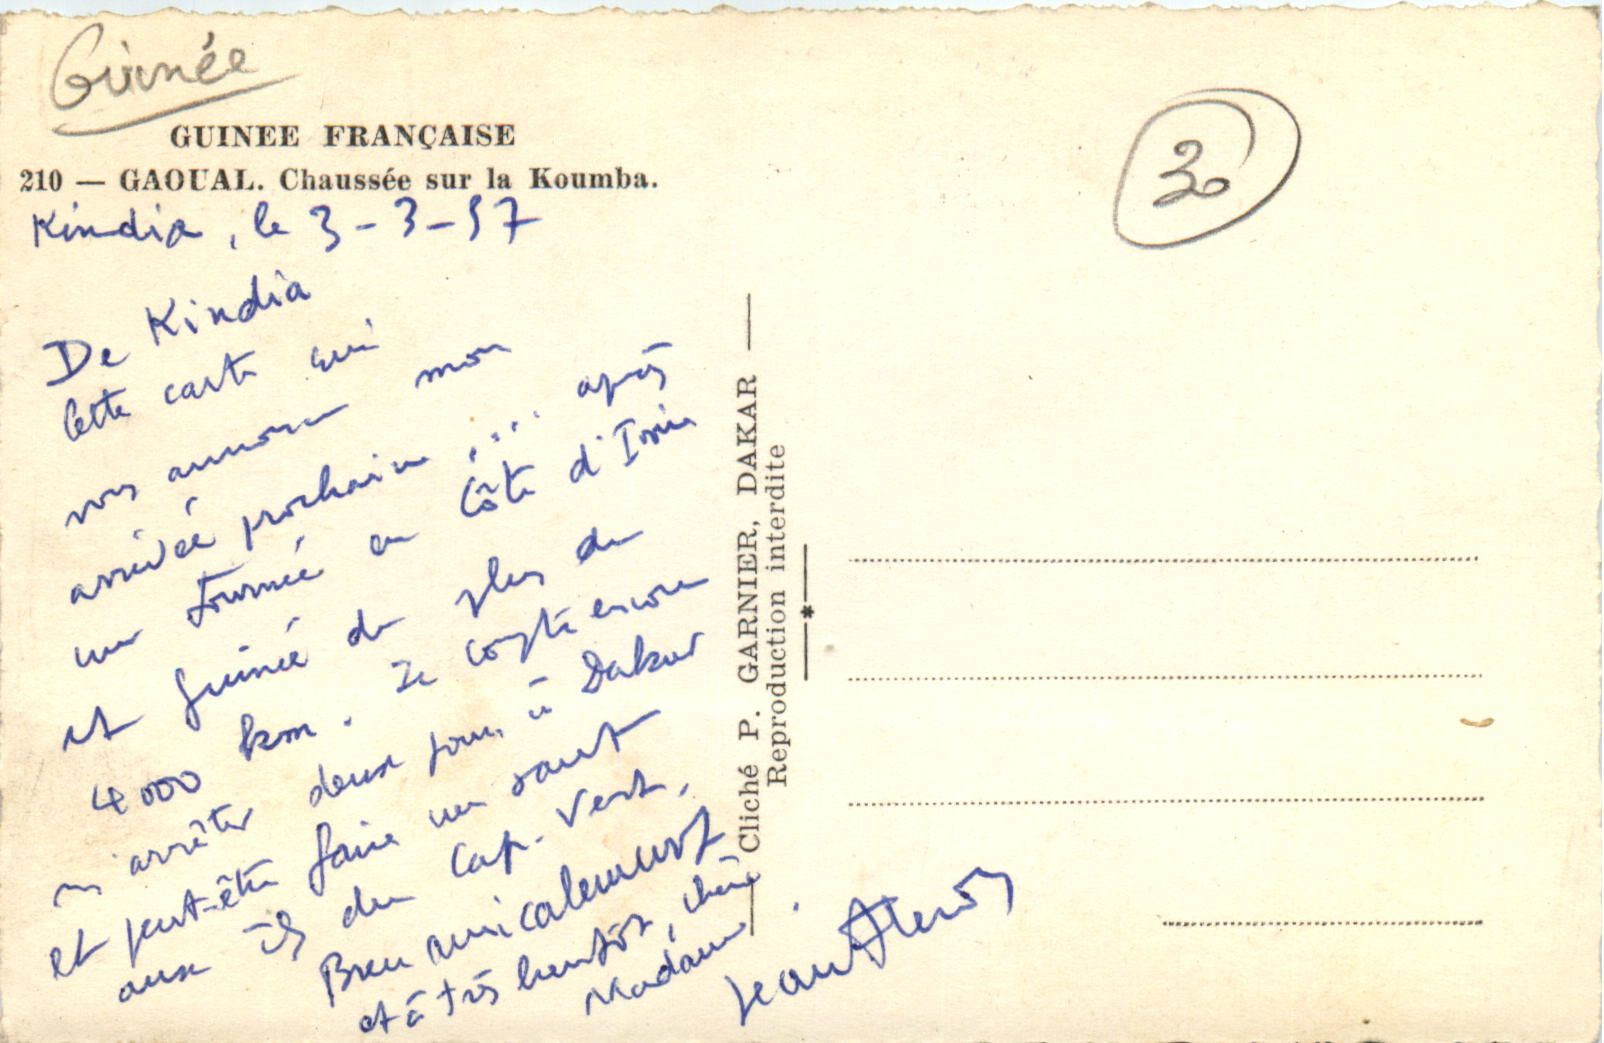 Guinée
GUINEE FRANÇAISE
210 — GAOUAL. Chaussée sur la Koumba.
Kindia, le 3-3-57
De Kindia
cette carte qui
vous annonce mon
arrivée prochaine ... après
une tournée en Côte d'Ivoire
et Guinée de plus de
4000 km. Je compte encore
m'arrêter deux jours à Dakar
et peut-être faire un saut
aux îles du Cap-Vert.
Bien amicalement
et à très bientôt, chère
Madame.
Jean
30
Cliché P. GARNIER, DAKAR
Reproduction interdite